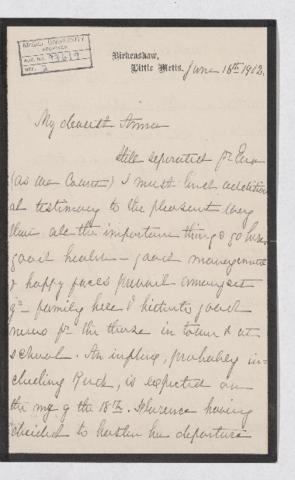 McGILL UNIVERSITY
ARCHIVES
ACC. NO.
REF. 2
Birkenshaw,
Little Metis. June 16th 1902.
My dearest Anna
Still separated fr Eva
(as we Count) I must lend addition
al testimony to the pleasant way
that all the important things go here
good health – good management
& happy faces prevail amongst
yr family here & hitherto good
news fr the three in town & at
school. An influx, probably in-
cluding Rack, is expected on
the mg of the 18th. Florence having
decided to hasten her departure